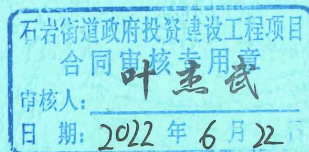 石岩街道政府投资建设工程项目
合同审核专用章
审核人：叶杰武
日期：2022年6月22日